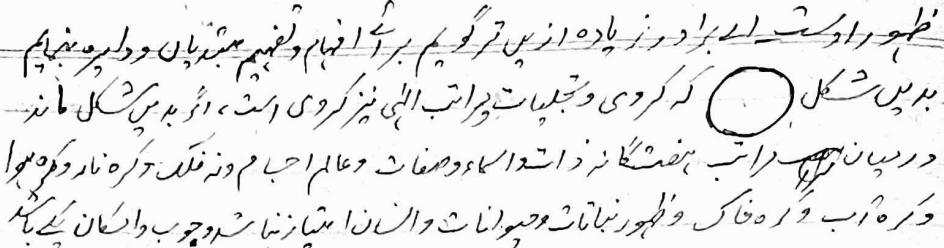 ظهور اوست اے برادر زیاده ازیں تر گویم برائے افهام و تفهیم مبتدیاں و دایره بنمایم
بدیں شکل که کروی و تجلیات مراتب الٰهی نیز کروی است، اگر بدیں شکل نماند
درمیان مراتب هفتگانه ذات و اسماء و صفات و عالم اجسام و نه فلک و کره نار و کره هوا
و کره آب و کره خاک و ظهور نباتات و حیوانات و انسان امتیاز نباشد وجوب و امکان یکے باشد